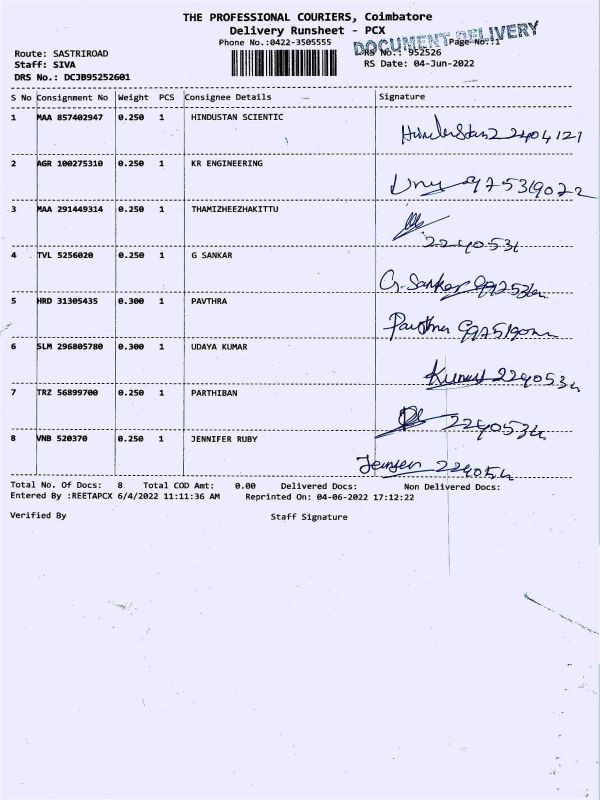 THE PROFESSIONAL COURIERS, Coimbatore
Delivery Runsheet - PCX
Phone No.:0422-3505555
DOCUMENT DELIVERY
Page No.:1
Route: SASTRIROAD
DRS No.: 952526
Staff: SIVA
RS Date: 04-Jun-2022
DRS No.: DCJB95252601
S No Consignment No Weight PCS Consignee Details Signature
1 MAA 857402947 0.250 1 HINDUSTAN SCIENTIC
2 AGR 100275310 0.250 1 KR ENGINEERING
3 MAA 291449314 0.250 1 THAMIZHEEZHAKITTU
2240531
4 TVL 5256020 0.250 1 G SANKAR
G. Sankar
5 HRD 31305435 0.300 1 PAVTHRA
Pavthra
6 SLM 296805780 0.300 1 UDAYA KUMAR
7 TRZ 56899700 0.250 1 PARTHIBAN
8 VNB 520370 0.250 1 JENNIFER RUBY
Total No. Of Docs: 8 Total COD Amt: 0.00 Delivered Docs: Non Delivered Docs:
Entered By :REETAPCX 6/4/2022 11:11:36 AM Reprinted On: 04-06-2022 17:12:22
Verified By Staff Signature